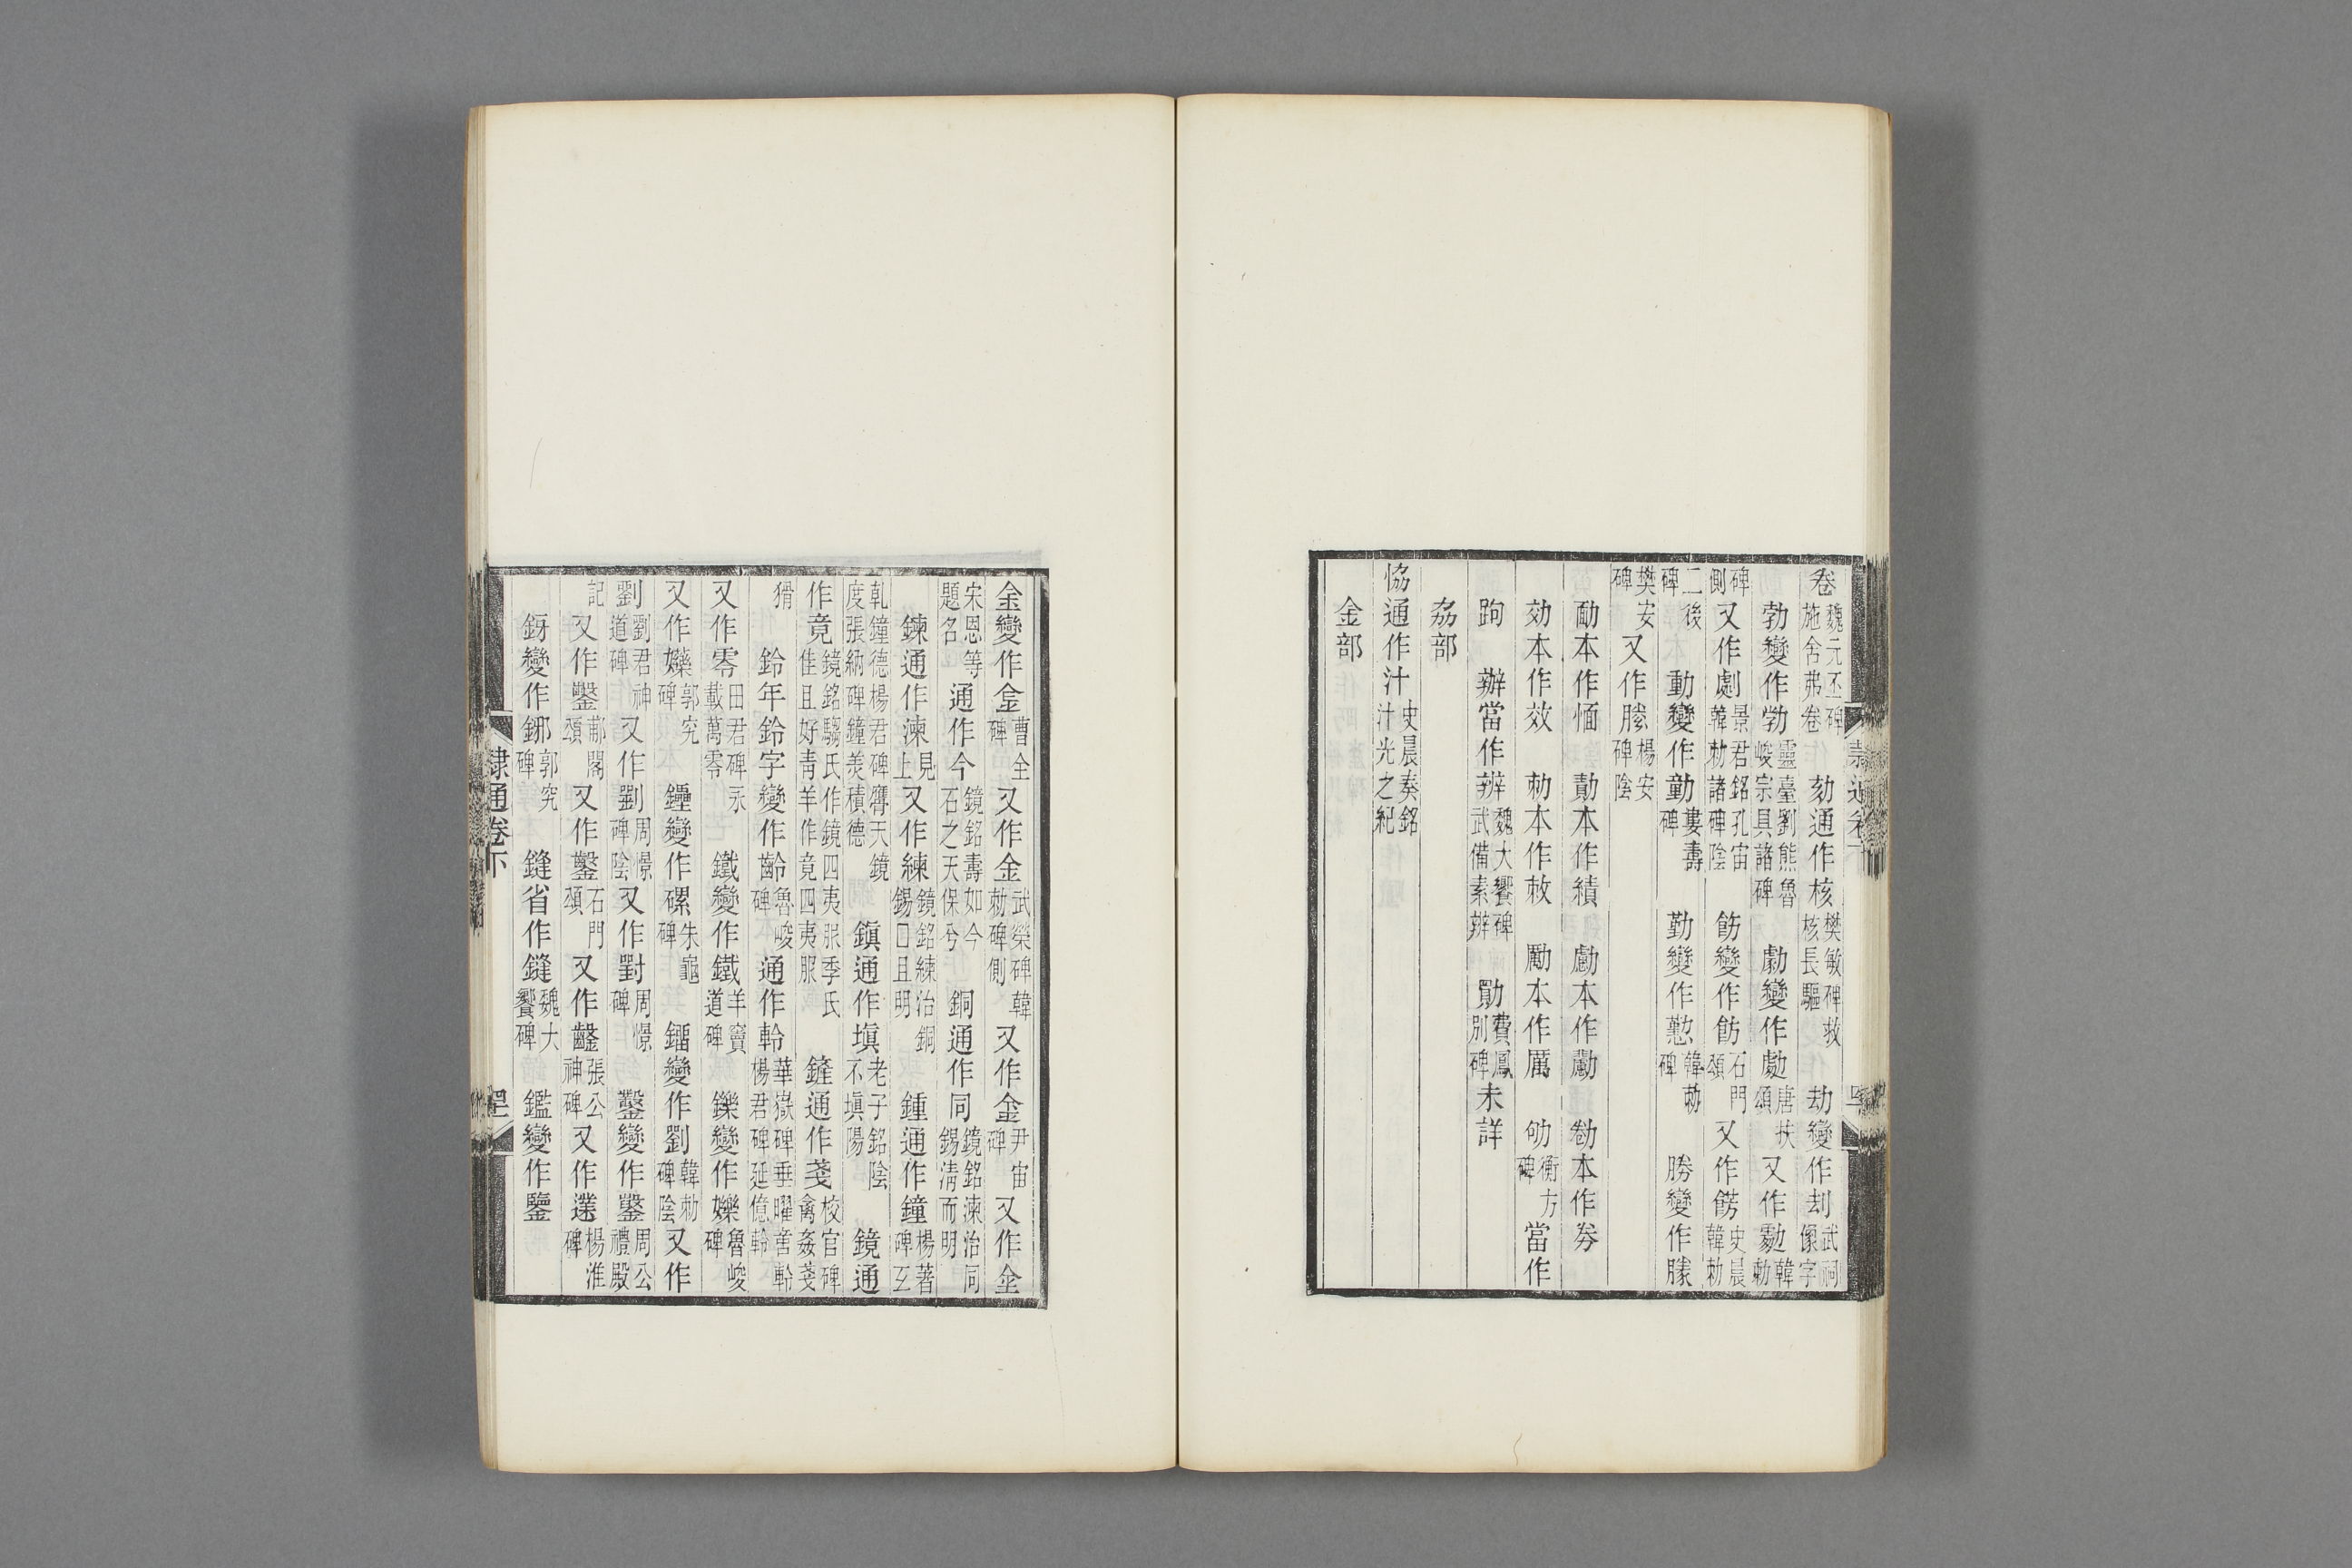 卷魏元丕碑施舍弗卷　劾通作核樊敏碑救核長驅　劫變作刦武祠像字
勃變作勃靈臺劉熊魯峻宗具諸碑　勮變作勮唐扶頌又作勮韓勅
碑側又作劇景君銘孔宙韓勅諸碑陰　飭變作飭石門頌又作餝史晨韓勅
二後碑　動變作動婁壽碑　勤變作懃韓勅碑　勝變作勝
樊安碑又作勝楊安碑陰
勔本作愐　勣本作績　勴本作勴　勌本作劵
効本作效　勅本作敕　勵本作厲　劬衡方碑當作
跔　辦當作辨魏大饗碑武備素辨　勛費鳳別碑未詳
劦部
協通作汁史晨奏銘汁光之紀
金部
金變作金曹全碑又作金武榮碑韓勅碑側又作金尹宙碑又作金
宋恩等題名通作今鏡銘壽如今石之天保兮　銅通作同鏡銘湅治同錫清而明
鍊通作湅見上又作練鏡銘練治銅錫囗且明　鍾通作鐘楊著碑玄
乹鐘德楊君碑膺天度張納碑鐘羙積德　鎮通作塡老子銘陰不塡陽　鏡通
作竟鏡銘騶氏作鏡四夷服季氏佳且好青羊作竟四夷服　鏟通作戔校官碑禽姦戔
猾　鈴年鈴字變作齡魯峻碑通作軨華嶽碑垂曜䇯軨楊君碑延億軨
又作零田君碑永載萬零　鐵變作鐵羊竇道碑　鑠變作嬫魯峻碑
又作嬫郭究碑　鑸變作磥朱龜碑　鎦變作劉韓勅碑陰又作
劉劉君神道碑又作劉周憬碑陰又作對周憬碑　鑿變作鑿周公禮殿
記又作鑿郙閣頌又作鑿石門頌又作鑿張公神碑又作鑿楊淮碑
釾變作鎁郭究碑　鏠省作鏠魏大饗碑　鑑變作鑒
隸通卷下